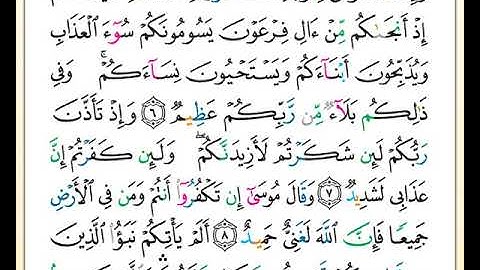 إِذْ أَنجَىٰكُم مِّنْ ءَالِ فِرْعَوْنَ يَسُومُونَكُمْ سُوٓءَ ٱلْعَذَابِ
وَيُذَبِّحُونَ أَبْنَآءَكُمْ وَيَسْتَحْيُونَ نِسَآءَكُمْ ۚ وَفِى
ذَٰلِكُم بَلَآءٌ مِّن رَّبِّكُمْ عَظِيمٌ ٦ وَإِذْ تَأَذَّنَ
رَبُّكُمْ لَئِن شَكَرْتُمْ لَأَزِيدَنَّكُمْ ۖ وَلَئِن كَفَرْتُمْ إِنَّ
عَذَابِى لَشَدِيدٌ ٧ وَقَالَ مُوسَىٰٓ إِن تَكْفُرُوٓا۟ أَنتُمْ وَمَن فِى ٱلْأَرْضِ
جَمِيعًا فَإِنَّ ٱللَّهَ لَغَنِىٌّ حَمِيدٌ ٨ أَلَمْ يَأْتِكُمْ نَبَؤُا۟ ٱلَّذِينَ